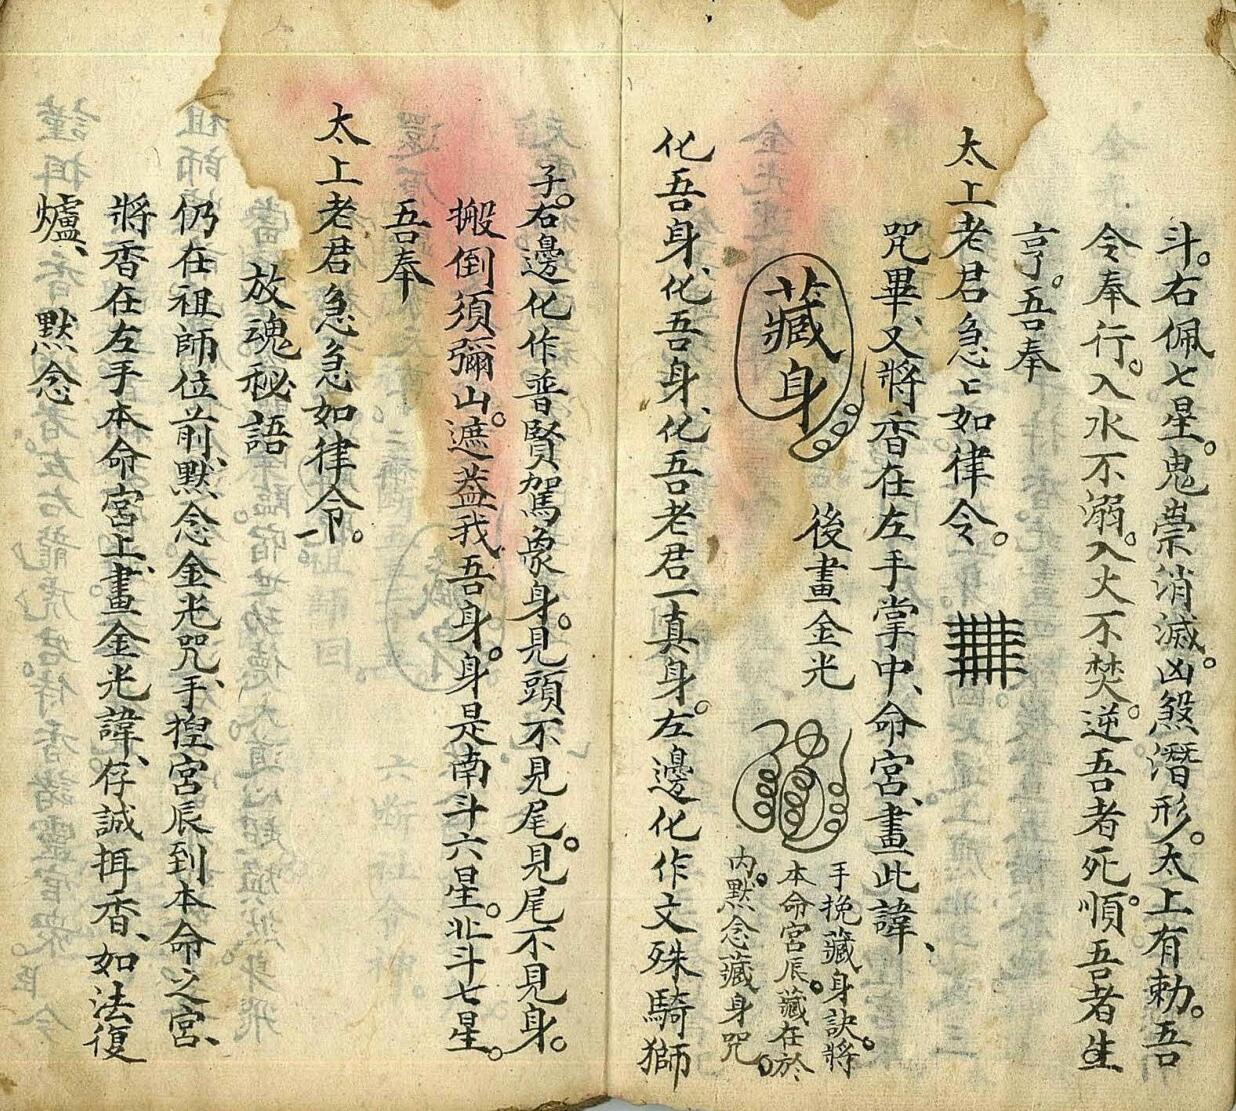 斗。右佩七星。鬼祟消滅。凶煞潛形。太上有勅。吾
令奉行。入水不溺。入火不焚。逆吾者死。順吾者生
亨。吾奉
太上老君急匕如律令。
咒畢、又將香在左手掌中、命宮、畫此諱、
藏身
後畫金光
手挽藏身訣將
本命宮辰。藏在於
內。默念藏身咒。
化吾身、化吾身、化吾老君一真身。左邊化作文殊騎獅
子。右邊化作普賢駕象身。見頭不見尾。見尾不見身。
搬倒須彌山。遮蓋我吾身。身是南斗六星。北斗七星。
吾奉
太上老君急急如律令。
放魂秘語
仍在祖師位前、默念金光咒、手揑宮辰到本命之宮、
將香在左手本命宮上、畫金光諱、存誠揖香、如法復
爐、默念